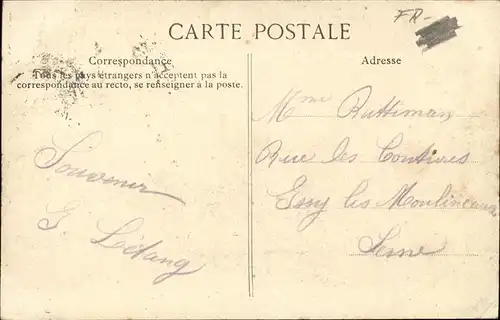 CARTE POSTALE
FR-
Correspondance
Tous les pays étrangers n'acceptent pas la
correspondance au recto, se renseigner à la poste.
Souvenir
G Létang
Adresse
Mme Ruttiman
Rue les
Issy les Moulineaux
Seine